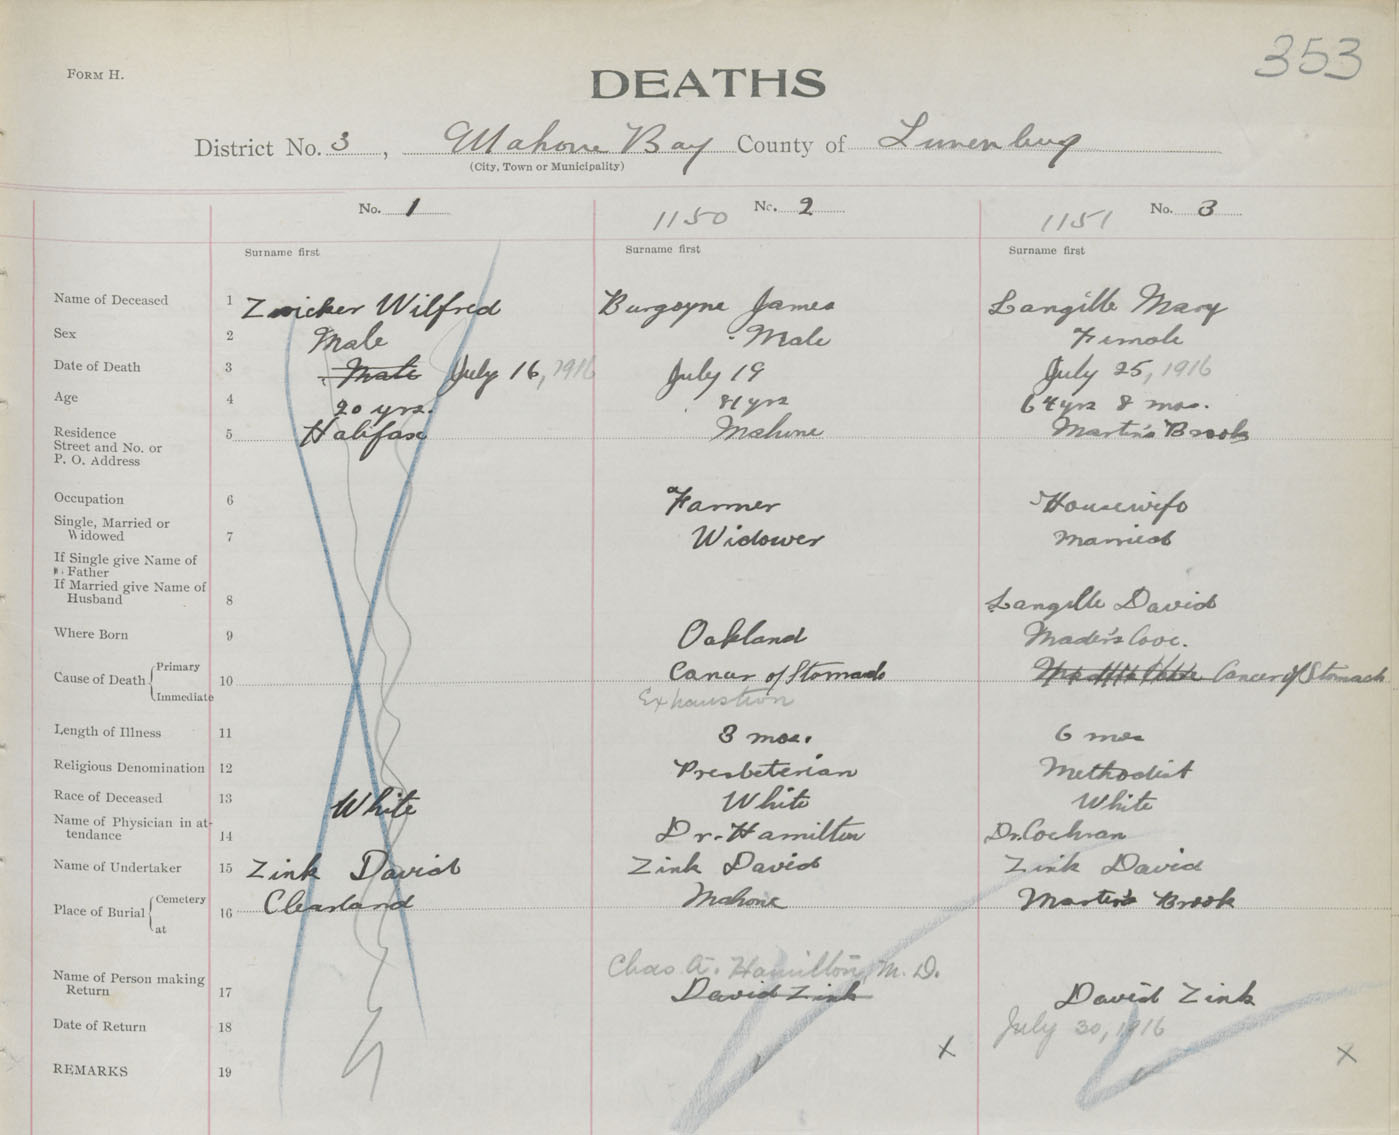 353
FORM H.
DEATHS
District No. 3, Mahone Bay County of Lunenburg
(City, Town or Municipality)
No. 1
1150 No. 2
1151 No. 3
Surname first Surname first Surname first
Name of Deceased 1 Zwicker Wilfred Burgoyne James Langille Mary
Sex 2 Male Male Female
Date of Death 3 Male July 16, 1916 July 19 July 25, 1916
Age 4 20 yrs. 81 yrs 64 yrs 8 mos.
Residence
Street and No. or
P. O. Address 5 Halifax Mahone Martin's Brook
Occupation 6 Farmer Housewife
Single, Married or
Widowed 7 Widower Married
If Single give Name of
Father
If Married give Name of
Husband 8 Langille David
Where Born 9 Oakland Mader's Cove.
Cause of Death { Primary
Immediate 10 Cancer of Stomach Cancer of Stomach
Exhaustion
Length of Illness 11 3 mos. 6 mos
Religious Denomination 12 Presbeterian Methodist
Race of Deceased 13 White White White
Name of Physician in at-
tendance 14 Dr. Hamilton Dr. Cochran
Name of Undertaker 15 Zink David Zink David Zink David
Place of Burial { Cemetery
at 16 Clearland Mahone Martin's Brook
Chas A. Hamilton, M. D.
Name of Person making
Return 17 David Zink David Zink
Date of Return 18 July 30, 1916
x x
REMARKS 19